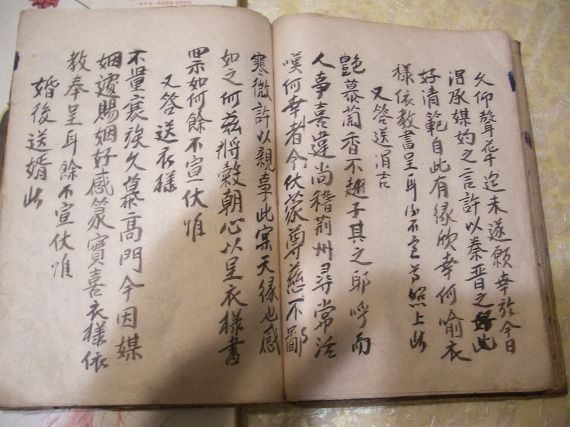 久仰聲華迄未遂願幸於今日
得承媒妁之言許以秦晉之此
好清範自此有緣欣幸何喻衣
樣依教書呈耳不宣照上
又答送涓吉
艶慕蔔香不趐子其之耶呼而
人事喜違尚稽荊州尋常活
嘆何幸者今伏蒙尊慈不鄙
寒微許以親事此寀天緣也感
如之何茲將穀朝心以呈衣樣書
如何餘不宣伏惟
又答送衣樣
不量寒族久慕高門今因媒
姻遽賜姻好感篆寶喜衣樣依
教奉呈耳餘不宣伏惟
婚後送婿此